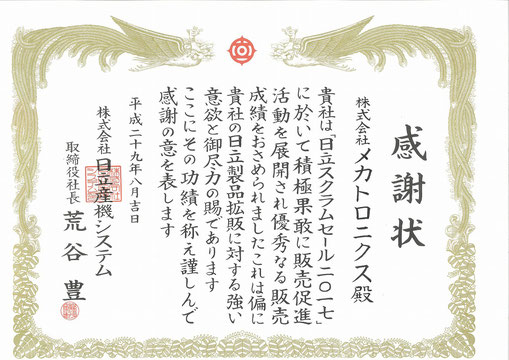 感謝状
株式会社メカトロニクス殿
貴社は「日立スクラムセール二〇一七」
に於いて積極果敢に販売促進
活動を展開され優秀なる販売
成績をおさめられましたこれは偏に
貴社の日立製品拡販に対する強い
意欲と御尽力の賜であります
ここにその功績を称え謹しんで
感謝の意を表します
平成二十九年八月吉日
株式会社日立産機システム
取締役社長 荒谷豊